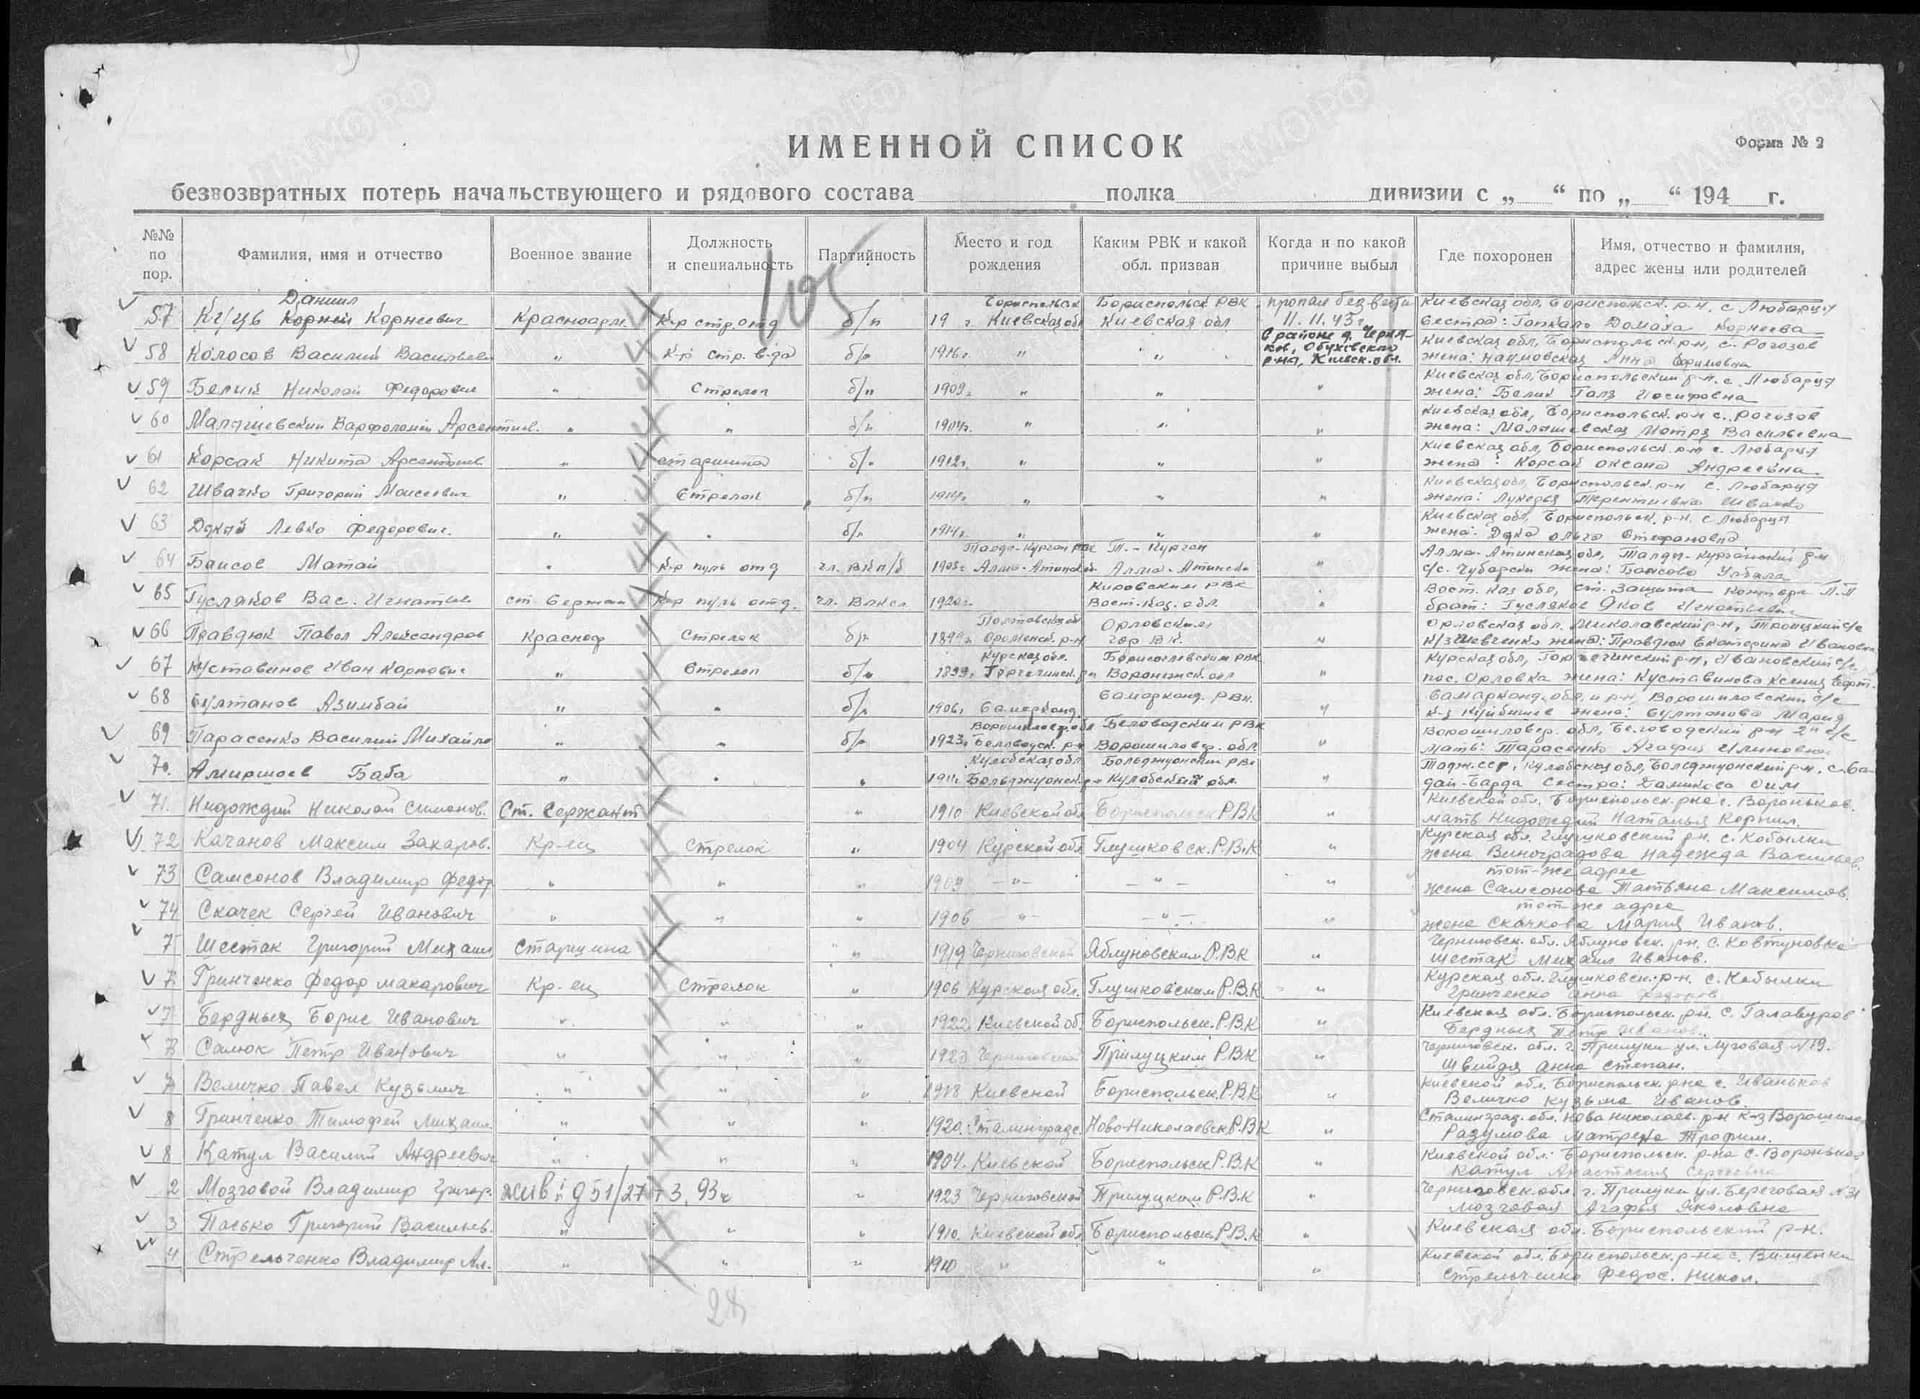 ИМЕННОЙ СПИСОК
Форма № 2
безвозвратных потерь начальствующего и рядового состава полка дивизии с „ “ по „ “ 194 г.
№№ по пор.
Фамилия, имя и отчество
Военное звание
Должность и специальность
Партийность
Место и год рождения
Каким РВК и какой обл. призван
Когда и по какой причине выбыл
Где похоронен
Имя, отчество и фамилия, адрес жены или родителей
105
57 Куць Даниил Корнеевич Красноарм. К-р стр. отд б/п 19 г. Бориспольск Киевская обл Бориспольск РВК Киевская обл пропал без вести 11.11.43 г. в районе д. Обуховского р-на, Киевск. обл. Киевская обл, Бориспольск. р-н, с. Любарцы
Сестра: Домаха Корнеевна
58 Колосов Василий Васильев " К-р стр. б/п 1916г. " " Киевская обл, Бориспольск р-н, с. Рогозов
жена: Наумовская Анна
59 Белик Николай Федорович " Стрелок б/п 1909г. " " " Киевская обл, Бориспольский р-н с. Любарцы
жена: Белик Иосифовна
60 Малашевский Варфоломей Арсентиев. " " б/п " " " Киевская обл, Бориспольск. р-н с. Рогозов
жена: Малашевская Мотря Васильевна
61 Корсак Никита " старшина б/п 1912г. " " " Киевская обл, Бориспольск р-н с. Любарцы
жена: Корсак Оксана Андреевна
62 Швачко Григорий Моисеевич " Стрелок б/п 1914г. " " " Киевская обл, Бориспольск. р-н с. Любарцы
жена: Лукерья Терентиевна Швачко
63 Левко Федорович. " " б/п 1914г. " " " Киевская обл, Бориспольск. р-н. с. Любарцы
жена: Ольга Стефановна
64 Баисов Матай " К-р пуль отд чл. ВКП/б 1905г. Талды-Курган РВК Алма-Атинской Т.-Курган Алма-Атинск " Алма-Атинская обл, Талды-Курганский р-н
с/с. жена: Баисова
65 Гусляков Вас. Игнатьев ст. Сержан К-р пуль отд. 1920г. Кировским РВК Вост.-Каз. обл. " Вост. Каз обл, ст. Защита контора
брат: Гусляков Яков Игнатьевич
66 Правдюк Павел Александров Красноар Стрелок б/п Полтавская обл. р-н Орловским гор ВК. " Орловская обл. Миколавский р-н, Троицкий с/с
к/з Шевченко жена: Правдюк Екатерина Ивановна
67 Куставинов Иван Карпович " Стрелок б/п 1899г Курская обл. Борисоглевским РВК Воронежск. обл " Курская обл, р-н, Ивановский с/с
пос. Орловка жена: Куставинова Ксения
68 Султанов Азимбай " " б/п 1906г Самарканд Самарканд. РВК. " Самарканд. обл, и р-н, Ворошиловский с/с
к-з Куйбышев жена: Султанова Мария
69 Тарасенко Василий Михайло " " б/п 1923г. Ворошиловгр обл Беловодск. р-н Беловодским РВК Ворошиловгр. обл " Ворошиловгр. обл, Беловодский р-н с/с
мать: Тарасенко Агафия
70. Амиршоев Баба " " " 1911г. Кулобская обл. Больджуонск. р-н Больджуонский РВК Кулобский обл. " Тадж. сср, Кулобская обл, Больджуонский р-н,
Сестра:
71. Нидождий Николай Симонов. Ст. Сержант " 1910 Киевской обл Бориспольск Р.В.К " Киевской обл. Бориспольск. р-на с. Вороньков.
мать Нидождий Наталья Корнил.
72 Качанов Максим Захаров. Кр-ец Стрелок " 1904 Курской обл Глушковск. Р.В.К " Курская обл. Глушковский р-н. с. Кобылки
жена Виноградова Надежда Васильев.
73 Самсонов Владимир Федор " " " – " – – " – " тот-же адрес
жена Самсонова Татьяна Максимов.
74 Скачек Сергей Иванович " " " 1906 – " – – " – " тот же адрес
жена Скачкова Мария Иванов.
7 Шестак Григорий Михаил Старшина " 1919 Черниговской Яблуновским Р.В.К " Черниговск. обл. Яблуновск. р-н. с. Ковтуновка
Шестак Михаил Иванов.
7 Гринченко Федор Макарович Кр-ец Стрелок " 1906 Курская обл. Глушковским Р.В.К " Курская обл. Глушковск. р-н. с. Кобылки
Гринченко Анна
7 Бердных Борис Иванович " " " 1922 Киевской об. Бориспольск. Р.В.К " Киевская обл. Бориспольск. р-н. с. Галавуров
Бердных Петр Иванов.
7 Салюк Петр Иванович " " " 1923 Черниговской Прилуцким Р.В.К " Черниговск. обл. г. Прилуки ул. Луговая №19.
Швийдя Анна Степан.
7 Величко Павел Кузьмич " " " 1918 Киевской Бориспольск. Р.В.К " Киевской обл. Бориспольск. р-на с. Иваньков
Величко Кузьма Иванов
8 Гринченко Тимофей Михаил " " " 1920. Сталинградс. Ново-Николаевск Р.В.К " Сталинград. обл. Ново Николаев. р-н к-з Ворошилов
Разумова Матрена Трофим.
8 Катул Василий Андреевич " " " 1904. Киевской Бориспольск. Р.В.К " Киевской обл. Бориспольск. р-на с. Вороньков
Катул Анастасия Сергеевна
2 Мозговой Владимир Григор. жив д 51/27 " 1923 Черниговской Прилуцким Р.В.К " Черниговск. обл. г. Прилуки ул. Береговая №31
Мозговая Агафья Яковлевна
3 Пасько Григорий Васильев. " " " 1910. Киевской обл. Бориспольск. Р.В.К " Киевская обл. Бориспольский р-н.
4 Стрельченко Владимир Ал. " " " 1910 " " " Киевской обл. Бориспольск. р-на с. Вишенки
Стрельченко Федос. Никол.
28